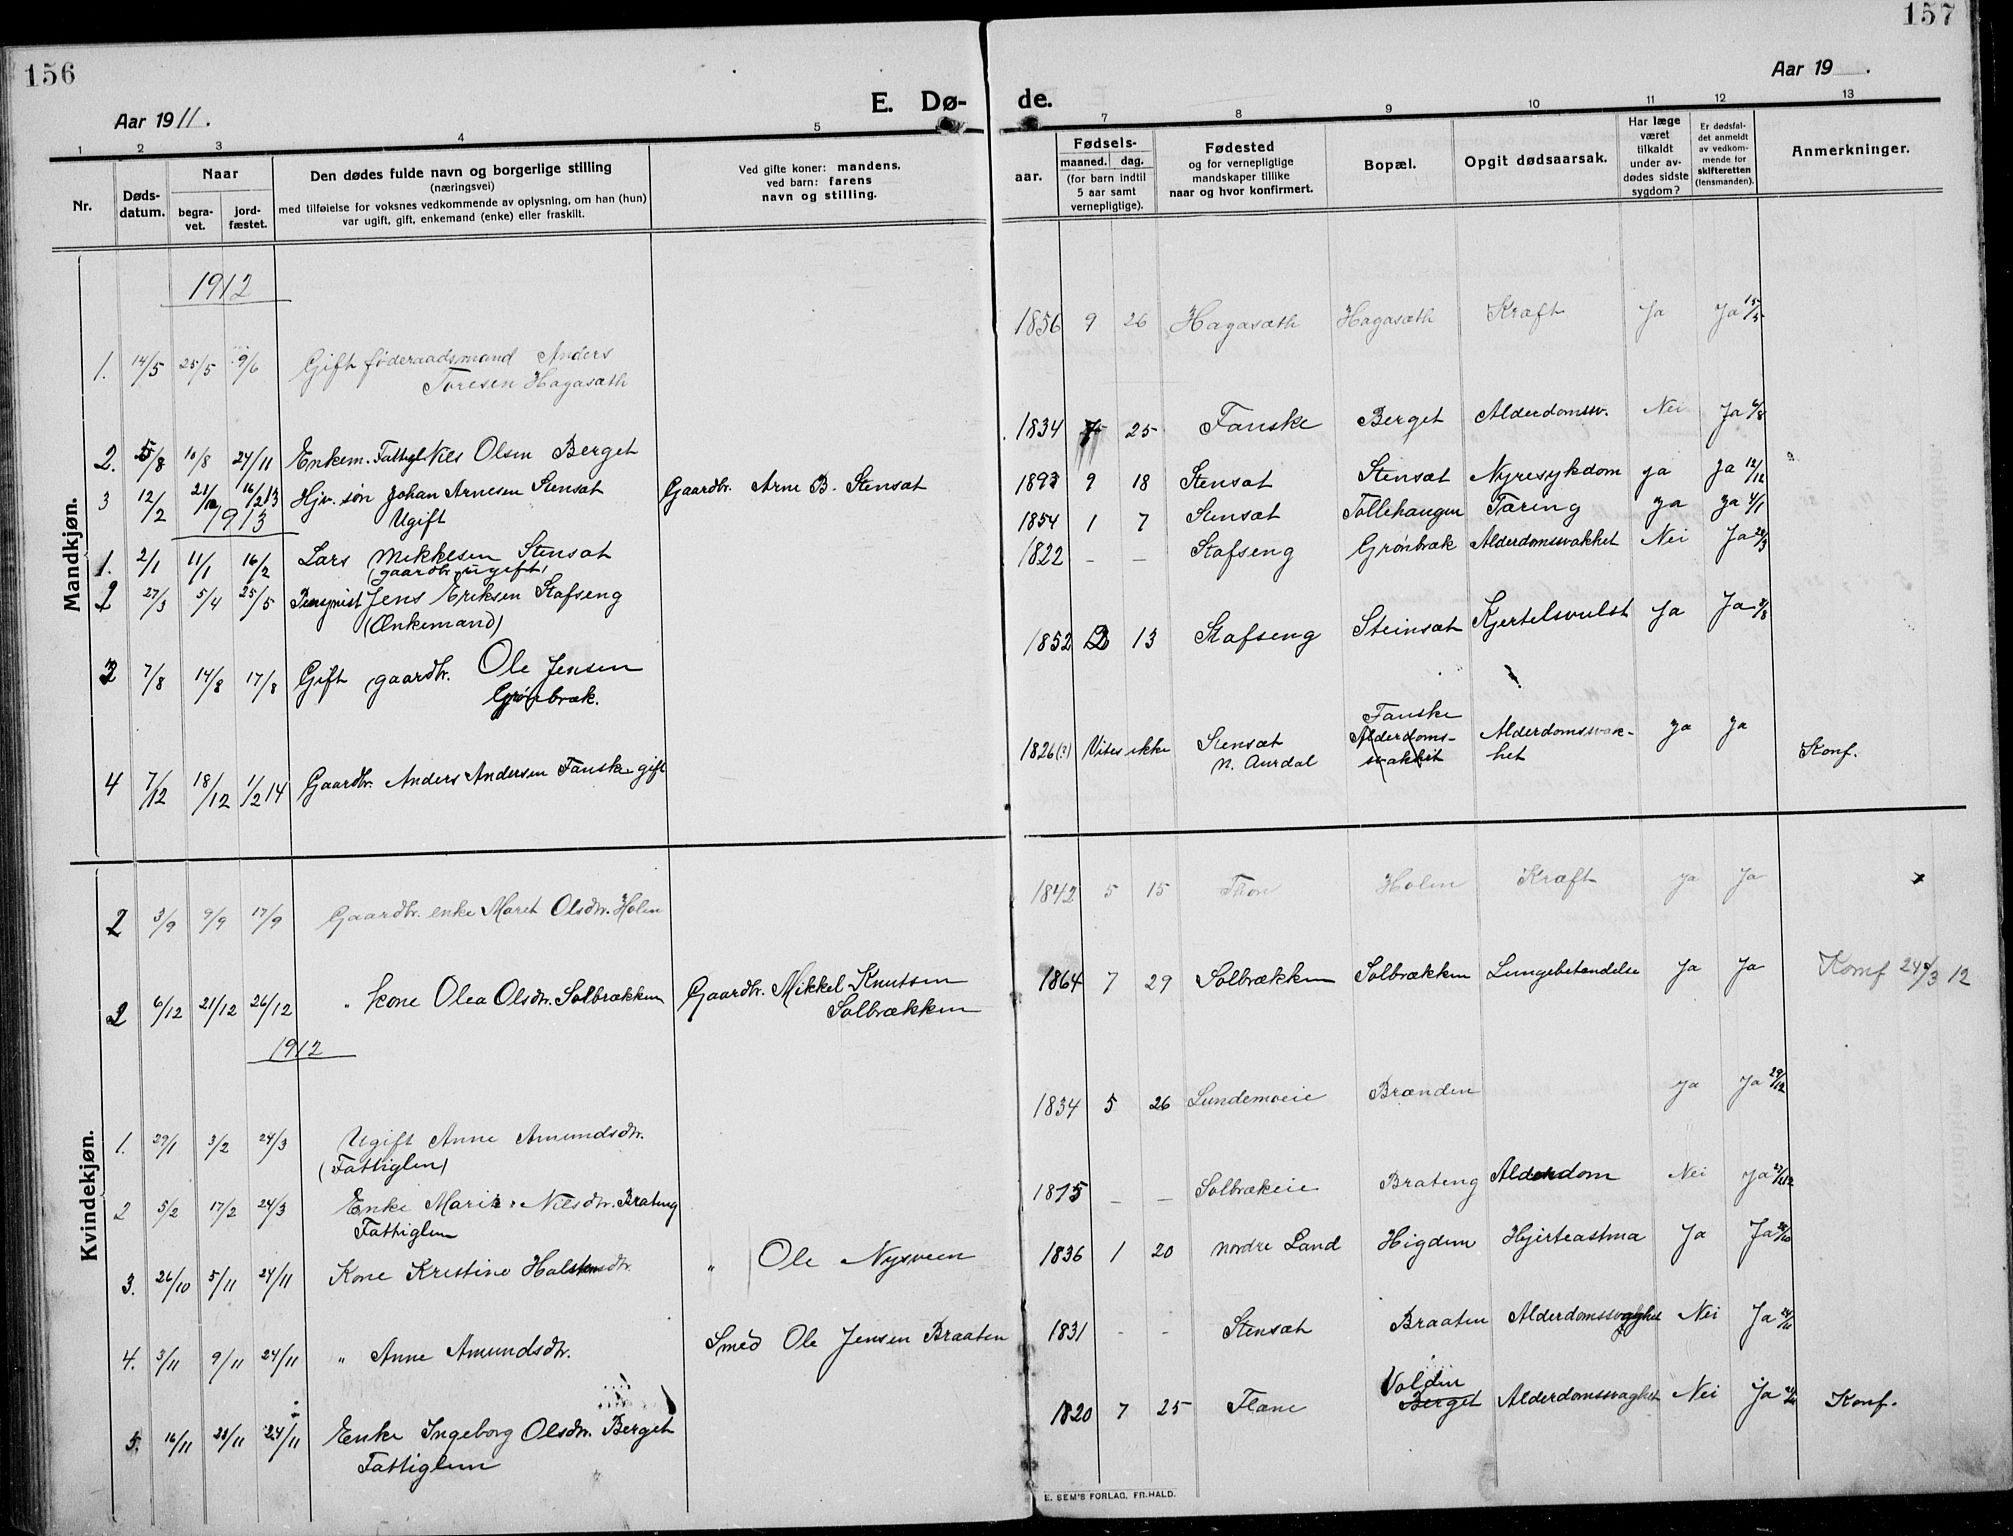 156
157
Aar 1911.
E. Dø-
de.
Aar 19 .
1 2 3 4 5 7 8 9 10 11 12 13
Nr.
Døds-
datum.
Naar
begra-
vet.
jord-
fæstet.
Den dødes fulde navn og borgerlige stilling
(næringsvei)
med tilføielse for voksnes vedkommende av oplysning, om han (hun)
var ugift, gift, enkemand (enke) eller fraskilt.
Ved gifte koner: mandens,
ved barn: farens
navn og stilling.
aar.
Fødsels-
maaned. dag.
(for barn indtil
5 aar samt
vernepligtige).
Fødested
og for vernepligtige
mandskaper tillike
naar og hvor konfirmert.
Bopæl.
Opgit dødsaarsak.
Har læge
været
tilkaldt
under av-
dødes sidste
sygdom?
Er dødsfal-
det anmeldt
av vedkom-
mende for
skifteretten
(lensmanden).
Anmerkninger.
Mandkjøn.
1912
1. 14/5 25/5 9/6 Gift føderaadsmand Anders
Toresen Hagasæth
1856 9 26 Hagasæth Hagasæth Kræft Ja Ja 15/5
2. 5/8 10/8 24/11 Enkem. Fattigl Nils Olsen Berget
1834 7 25 Fanske Berget Alderdomssv. Nei Ja 6/8
3 12/2 21/12 16/2 13 Hjv. søn Johan Arnesen Stensæt Gaardbr. Arne B. Stensæt
Ugift
1893 9 18 Stensæt Stensæt Nyresykdom ja ja 12/12
1913
1. 2/1 11/1 16/2 Lars Mikkelsen Stensæt
(gaardbr. ugift)
1854 1 7 Stensæt Tollehaugen Tæring ja ja 4/1
2 27/3 5/4 25/5 Jens Eriksen Stafseng
(Enkemand)
1822 – – Stafseng Grønbræk Alderdomssvakhet Nei Ja 29/3
3 7/8 14/8 17/8 Gift gaardbr. Ole Jensen
Grønbræk.
1852 2 13 Stafseng Steinsæt Kjertelsvulst Ja Ja 8/8
4 7/12 18/12 1/2 14 Gaardbr. Anders Andersen Fanske gift
1826(?) Vites ikke Stensæt
N. Aurdal
Fanske
Alderdoms-
svakhet
Alderdomssvak-
het
ja ja Konf.
Kvindekjøn.
2 3/9 9/9 17/9 Gaardbr. enke Marit Olsdtr. Holen
1842 5 15 Thon Holen Kræft ja Ja x
2 6/12 21/12 26/12 " kone Olea Olsdtr. Solbrækken Gaardbr. Mikkel Knutsen
Solbrækken
1864 7 29 Solbrækken Solbrækken Lungebetændelse Ja Ja Konf 24/3 12
1912
1. 29/1 3/2 24/3 Ugift Anne Amundsdtr.
(Fattiglem)
1834 5 26 Lundemoeie Brænden ja ja 29/12
2 5/2 17/2 24/3 Enke Marit Nilsdtr. Brateng
Fattiglem
1815 – – Solbrækeie Brateng Alderdom Nei ja
3. 26/10 5/11 24/11 Kone Kristine Halstensdtr. " Ole Nysveen
1836 1 20 Nordre Land Higden Hjerteastma Ja Ja 28/10
4. 3/11 9/11 24/11 " Anne Amundsdtr. Smed Ole Jensen Braaten
1831 - - Stensæt Braaten Alderdomssvaghet Nei Ja
5. 16/11 23/11 24/11 Enke Ingeborg Olsdtr. Berget
Fattiglem
1820 7 25 Flæne Volden
Berget
Alderdomssvaghet Nei Ja Konf.
E. SEM'S FORLAG, FR.HALD.